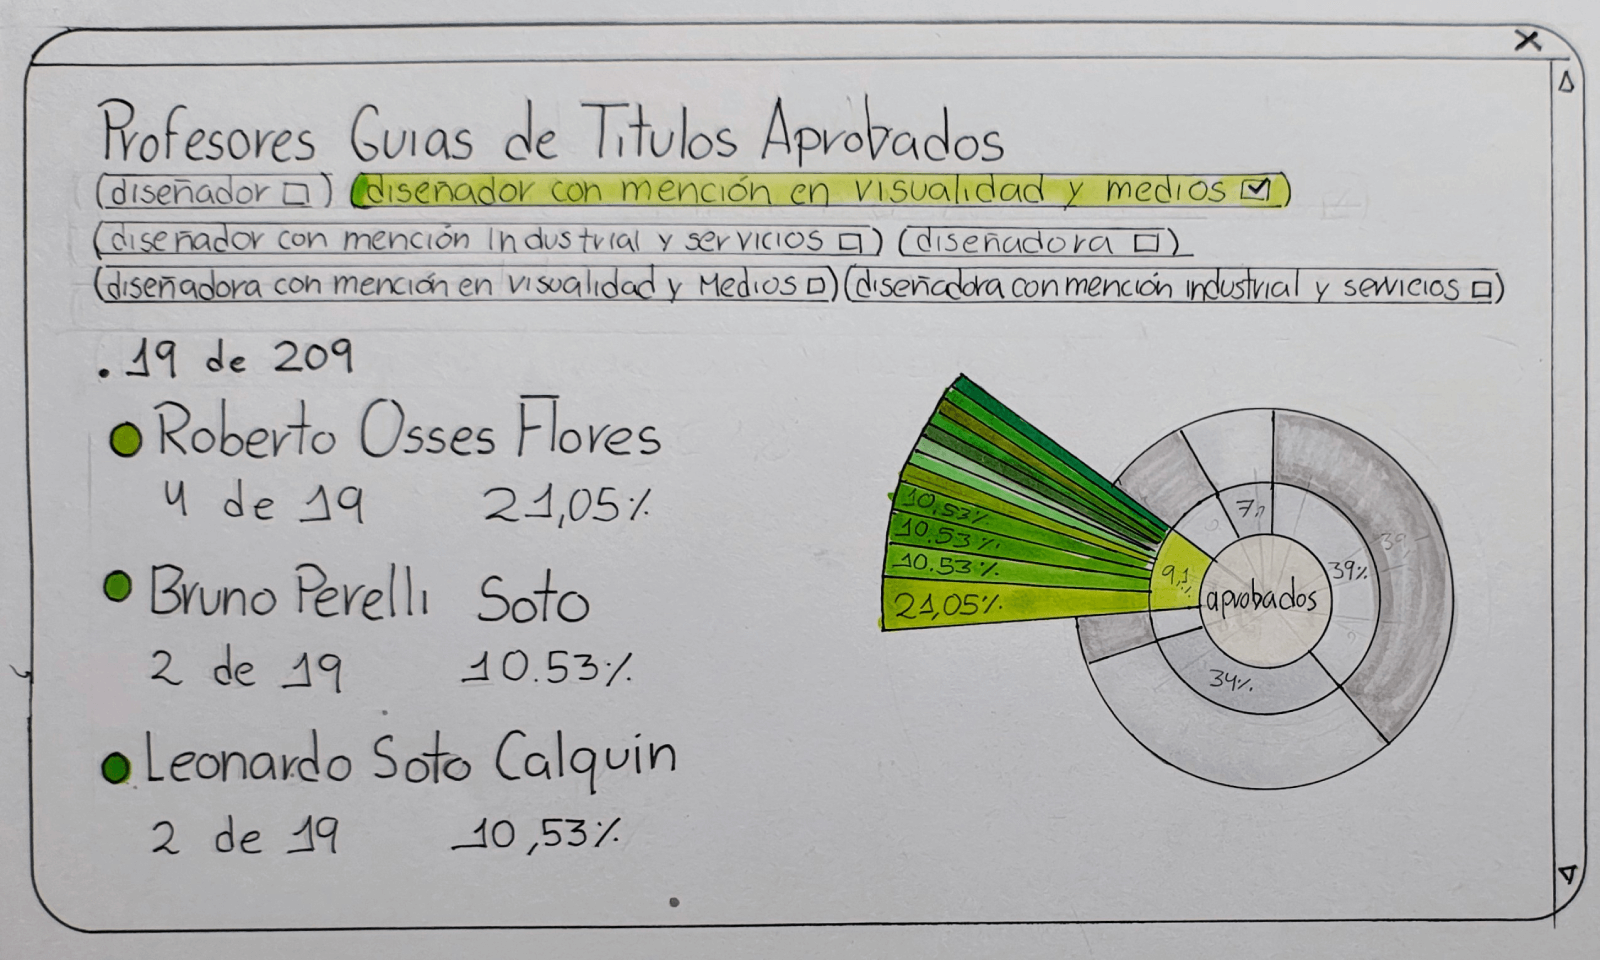 X
Profesores Guias de Titulos Aprobados
(diseñador □) (diseñador con mención en visualidad y medios ☑)
(diseñador con mención Industrial y servicios □) (diseñadora □)
(diseñadora con mención en visualidad y Medios □) (diseñadora con mención industrial y servicios □)
. 19 de 209
Roberto Osses Flores
4 de 19 21,05%
Bruno Perelli Soto
2 de 19 10.53%
Leonardo Soto Calquin
2 de 19 10,53%
10,53%
10.53%
10.53%
21,05%
9,1%
7%
39%
39%
34%
aprobados